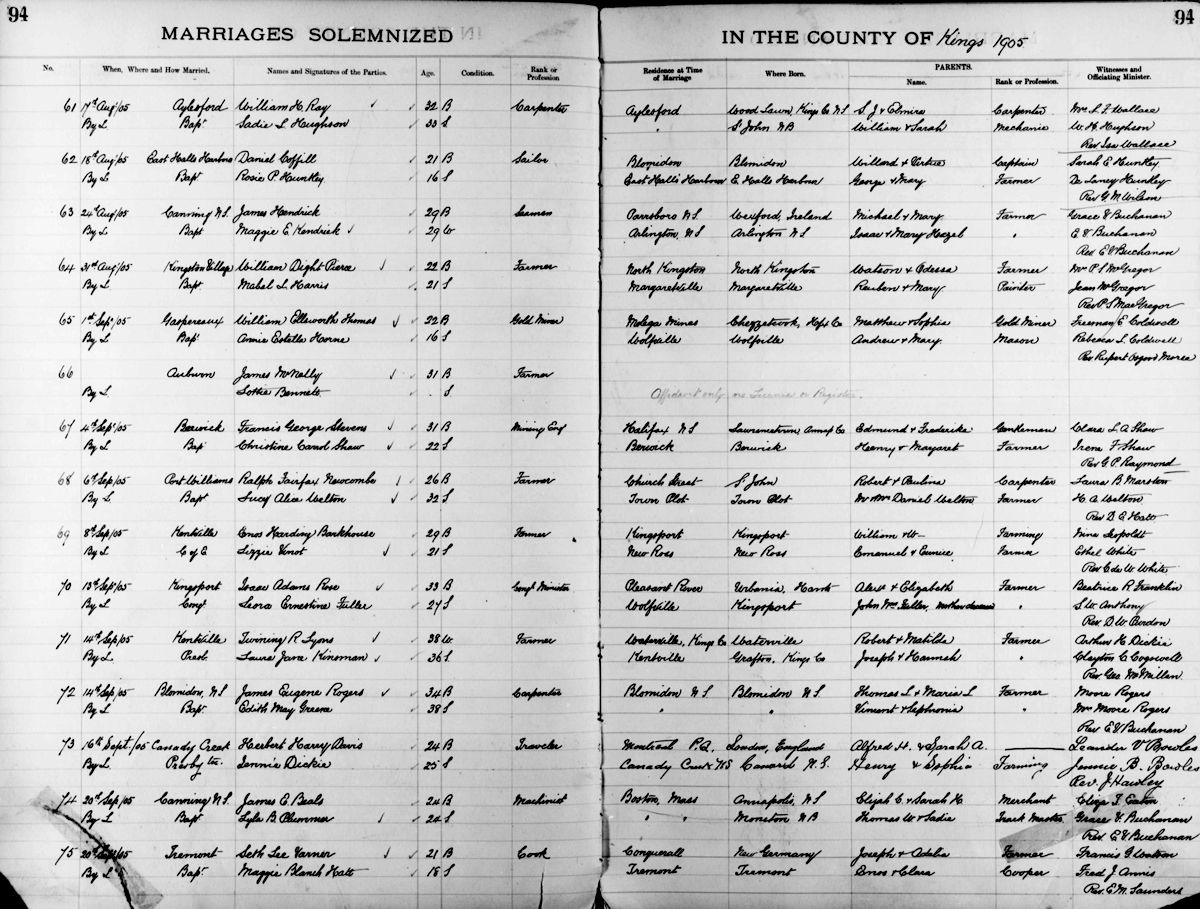 94
94
MARRIAGES SOLEMNIZED
IN THE COUNTY OF Kings 1905
No. When, Where and How Married. Names and Signatures of the Parties. Age. Condition. Rank or Profession Residence at Time of Marriage Where Born. PARENTS. Name. Rank or Profession. Witnesses and Officiating Minister.
61 17th Aug/05 Aylesford William H. Ray 32 B Carpenter Aylesford Wood Lawn, Kings Co N S S. J & Elmira Carpenter Mrs L. F Wallace
By L Bapt Sadie L Hughson 33 S " St John N B William & Sarah Mechanic W. H. Hughson
Rev Isa Wallace
62 18th Aug/05 East Halls Harbour Daniel Coffill 21 B Sailor Blomidon Blomidon Willard & Captain Sarah E Huntley
By L Bapt Rosie P. Huntley 16 S East Hall's Harbour E. Halls Harbour George & Mary Farmer De Laney Huntley
Rev G. M. Wilson
63 24th Aug/05 Canning N.S. James Hendrick 29 B Seaman Parrsboro N S Wexford, Ireland Michael & Mary Farmer Grace V Buchanan
By L Bapt Maggie E. Kendrick 29 W Arlington, N S Arlington N S Isaac & Mary Hazel " E V Buchanan
Rev. E V Buchanan
64 31st Aug/05 Kingston Village William Dight Pierce 22 B Farmer North Kingston North Kingston Watson & Odessa Farmer Mrs P. S McGregor
By L Bapt Mabel L. Harris 21 S Margaretville Margaretville Reuben & Mary Painter Jean McGregor
Rev P. S MacGregor
65 1st Sep/05 Gaspereaux William Ellsworth Thomas 22 B Gold Miner Molega Mines Chezzetcook, Hfx Co Matthew & Sophia Gold Miner Freeman E Coldwell
By L Bapt Annie Estella Horne 16 S Wolfville Wolfville Andrew & Mary Mason Rebecca L Coldwell
Rev Rupert Osgood Morse
66 Auburn James McNally 31 B Farmer
By L Lottie Bennett . S Affidavit only no License or Register.
67 4th Sep/05 Berwick Francis George Stevens 31 B Mining Eng Halifax N S Lawrencetown, Annap Co Edmund & Frederika Gentleman Clara L. A Shaw
By L Bap Christine Carol Shaw 22 S Berwick Berwick Henry & Margaret Farmer Irene F Shaw
Rev G. P. Raymond
68 6th Sep/05 Port Williams Ralph Fairfax Newcombe 26 B Farmer Church Street St John Robert & Paulina Carpenter Laura B Marston
By L Bapt Lucy Alice Welton 32 S Town Plot Town Plot Mr & Mrs Daniel Welton Farmer H. A Welton
Rev D. E Hatt
69 8th Sep/05 Kentville Enos Harding Barkhouse 29 B Farmer Kingsport Kingsport William & W— Farming Nina Leopoldt
By L C of E Lizzie Veinot 21 S New Ross New Ross Emanuel & Eunice Farmer Ethel White
Rev C de W White
70 13th Sep/05 Kingsport Isaac Adams Rose 33 B Congt Minister Pleasant River Urbania, Hants Alex & Elizabeth Farmer Beatrice R Franklin
By L Congt Leora Ernestine Fuller 27 S Wolfville Kingsport John Wm Fuller, mother deceased " S W Anthony
Rev. D. W. Purdon
71 14th Sep/05 Kentville Twining R Lyons 38 W. Farmer Waterville, Kings Co Waterville Robert & Matilda Farmer Arthur H Dickie
By L Presb. Laura Jane Kinsman 36 S Kentville Grafton, Kings Co Joseph & Hannah " Clayton C Cogswell
Rev. Geo McMillan
72 14th Sep/05 Blomidon, N S James Eugene Rogers 34 B Carpenter Blomidon N S Blomidon N S Thomas L & Maria L Farmer Moore Rogers
By L Bapt Edith May Greene 38 S " " Vincent & Sephronia " Mrs Moore Rogers
Rev E V Buchanan
73 16th Sept./05 Canady Creek Herbert Harry Davis 24 B Traveler Montreal P.Q. London, England Alfred H. & Sarah A. —— Leander V Bowles
By L. Presbytn Jennie Dickie 25 S Canady Creek NS Canard N. S. Henry & Sophia Farming Jennie B. Bowles
Rev. J Hawley
74 20th Sep/05 Canning N S. James E Beals 24 B Machinist Boston, Mass Annapolis, N S Elijah C. & Sarah H Merchant Eliza J. Eaton
By L Bapt Lyla B. Plummer 24 S " " Moncton N B Thomas W & Sadie Track Master Grace V Buchanan
Rev. E V Buchanan
75 20th Sept/05 Tremont Seth Lee Varner 21 B Cook Conquerall New Germany Joseph & Adelia Farmer Francis G Watson
By L Bapt Maggie Blanch Hatt 18 S Tremont Tremont Enos & Clara Cooper Fred J. Annis
Rev. E. M. Saunders